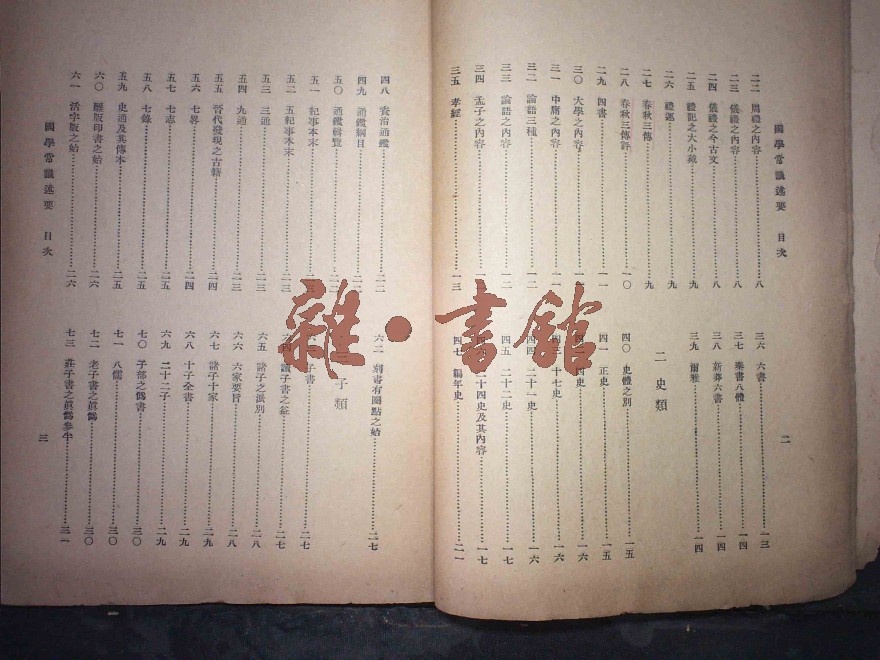 國學常識述要 目次
二二 周禮之內容 八
二三 儀禮之內容 八
二四 儀禮之今古文 八
二五 禮記之大小戴 九
二六 禮運 九
二七 春秋三傳 九
二八 春秋三傳評 一〇
二九 四書 一一
三〇 大學之內容
三一 中庸之內容
三二 論語三種 一二
三三 論語之內容 一二
三四 孟子之內容
三五 孝經 一三
三六 六書 一三
三七 秦書八體 一四
三八 新莽六書 一四
三九 爾雅 一四
二 史類
四〇 史體之別 一五
四一 正史 一五
四史 一六
十七史 一六
四四 二十一史 一六
四五 二十二史 一七
二十四史及其內容 一七
四七 編年史 二一
二
四八 資治通鑑 二二
四九 通鑑綱目 二二
五〇 通鑑輯覽
五一 紀事本末
五二 五紀事本末 二三
五三 三通 二三
五四 九通 二三
五五 晉代發現之古籍 二四
五六 七畧 二四
五七 七志 二五
五八 七錄 二五
五九 史通及其傳本 二五
六〇 雕版印書之始 二六
六一 活字版之始 二六
六二 刻書有圈點之始 二七
子類
子書 二七
讀子書之益 二七
六五 諸子之派別 二八
六六 六家要旨 二八
六七 諸子十家 二九
六八 十子全書 二九
六九 二十二子 二九
七〇 子部之僞書 三〇
七一 八儒 三〇
七二 老子書之眞僞 三〇
七三 莊子書之眞僞參半 三一
國學常識述要 目次
三
雜·書館